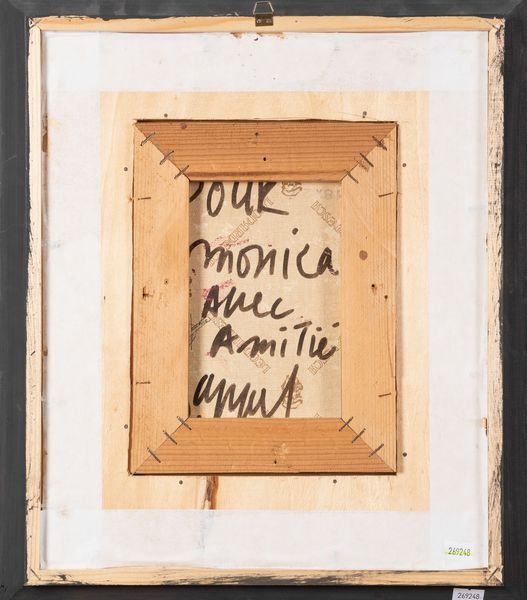 Pour
monica
avec
Amitié
appel
269248
269248